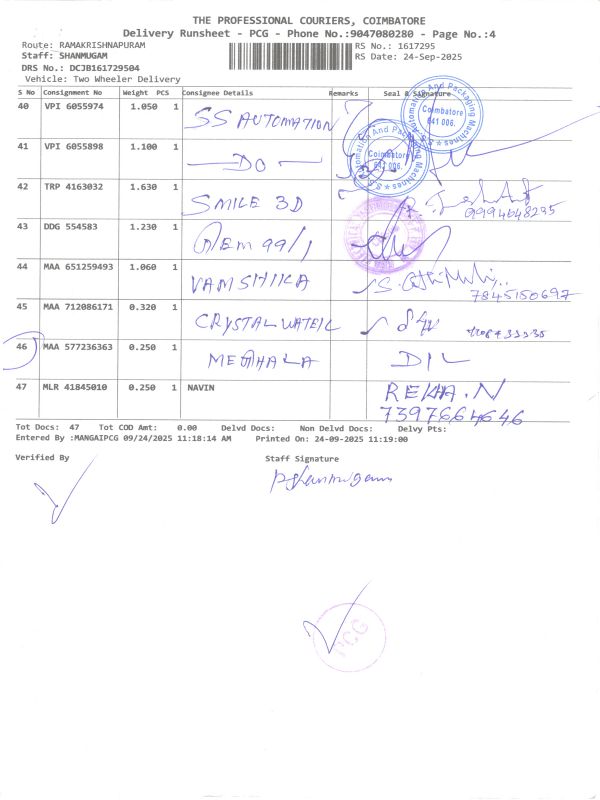 THE PROFESSIONAL COURIERS, COIMBATORE
Delivery Runsheet - PCG - Phone No.:9047080280 - Page No.:4
Route: RAMAKRISHNAPURAM
RS No.: 1617295
Staff: SHANMUGAM
RS Date: 24-Sep-2025
DRS No.: DCJB161729504
Vehicle: Two Wheeler Delivery
S No Consignment No Weight PCS Consignee Details Remarks Seal & Signature
40 VPI 6055974 1.050 1 SS AUTOMATION
41 VPI 6055898 1.100 1 — DO —
42 TRP 4163032 1.630 1 SMILE 3D
9994648235
43 DDG 554583 1.230 1 GEM 99/1
44 MAA 651259493 1.060 1 VAMSHIKA
7845150697
45 MAA 712086171 0.320 1 CRYSTAL WATER
46 MAA 577236363 0.250 1 MEGHALA DIL
47 MLR 41845010 0.250 1 NAVIN REKHA.N
7397664646
Automation And Packaging Machines
Coimbatore
641 006.
Automation And Packaging Machines
Coimbatore
641 006.
Tot Docs: 47 Tot COD Amt: 0.00 Delvd Docs: Non Delvd Docs: Delvy Pts:
Entered By :MANGAIPCG 09/24/2025 11:18:14 AM Printed On: 24-09-2025 11:19:00
Verified By
Staff Signature
PShanmugam
PCG